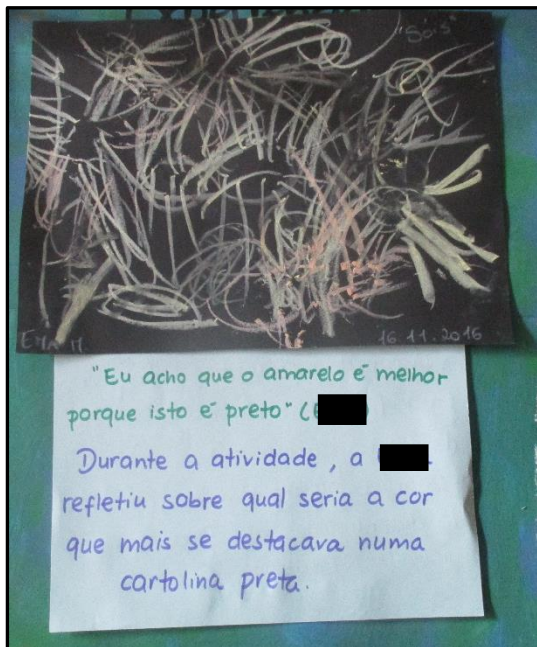 "Sóis"
EMA M. 16.11.2016
"Eu acho que o amarelo é melhor
porque isto é preto" (
Durante a atividade, a
refletiu sobre qual seria a cor
que mais se destacava numa
cartolina preta.